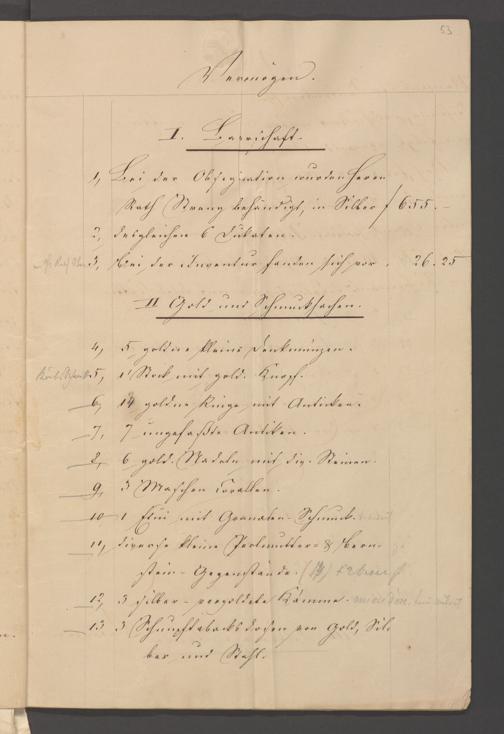 53
Vermögen.
I. Baarschaft.
1, Bei der Obsignation wurden Herrn
Rath Strenz behändigt, in Silber f 655.–
2, desgleichen 6 Dukaten.
3, Bei der Inventur fanden sich vor . 26. 25
II Gold und Schmucksachen.
4, 5 goldne kleine Denkmünzen.
5, 1 Stock mit gold. Knopf.
6, 14 goldne Ringe mit Antiken.
7, 7 ungefaßte Antiken.
8, 6 gold. Nadeln mit div. Steinen.
9, 3 Maschen Corallen.
10 1 Etui mit Granaten-Schmuck.
11, diverse kleine Perlmutter- & Bern-
stein-Gegenstände.
12, 3 silber-vergoldete Kämme.
13 3 Schnupftabacksdosen von Gold, Sil-
ber und Stahl.